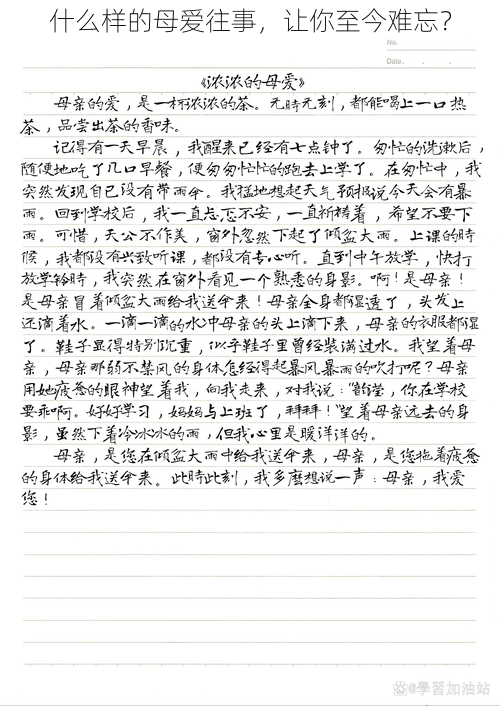 什么样的母爱往事，让你至今难忘？
No.
Date. . .
《浓浓的母爱》
母亲的爱，是一杯浓浓的茶。无時无刻，都能喝上一口热
茶，品尝出茶的香味。
记得有一天早晨，我醒来已经有七点钟了。匆忙的洗漱后，
随便地吃了几口早餐，便匆匆忙忙的跑去上学了。在匆忙中，我
突然发现自己没有带雨伞。我猛地想起天气预报说今天会有暴
雨。回到学校后，我一直忐忑不安，一直祈祷着，希望不要下
雨。可惜，天公不作美，窗外忽然下起了倾盆大雨。上课的時
候，我都没有兴致听课，都没有专心听。直到中午放学，快打
放学铃時，我突然在窗外看见一个熟悉的身影。啊！是母亲！
是母亲冒着倾盆大雨给我送伞来！母亲全身都湿透了，头发上
还滴着水。一滴一滴的水冲母亲的头上滴下来，母亲的衣服都湿
了。鞋子显得特别沉重，似乎鞋子里曾经装满过水。我望着母
亲，母亲那弱不禁风的身体怎经得起暴风暴雨的吹打呢？母亲
用她疲惫的眼神望着我，向我走来，对我说：“韵莹，你在学校
要乖啊。好好学习，妈妈去上班了，拜拜！”望着母亲远去的身
影，虽然下着冷冰冰的雨，但我心里是暖洋洋的。
母亲，是您在倾盆大雨中给我送伞来，母亲，是您拖着疲惫
的身体给我送伞来。此時此刻，我多麽想说一声：母亲，我爱
您！
@學習加油站